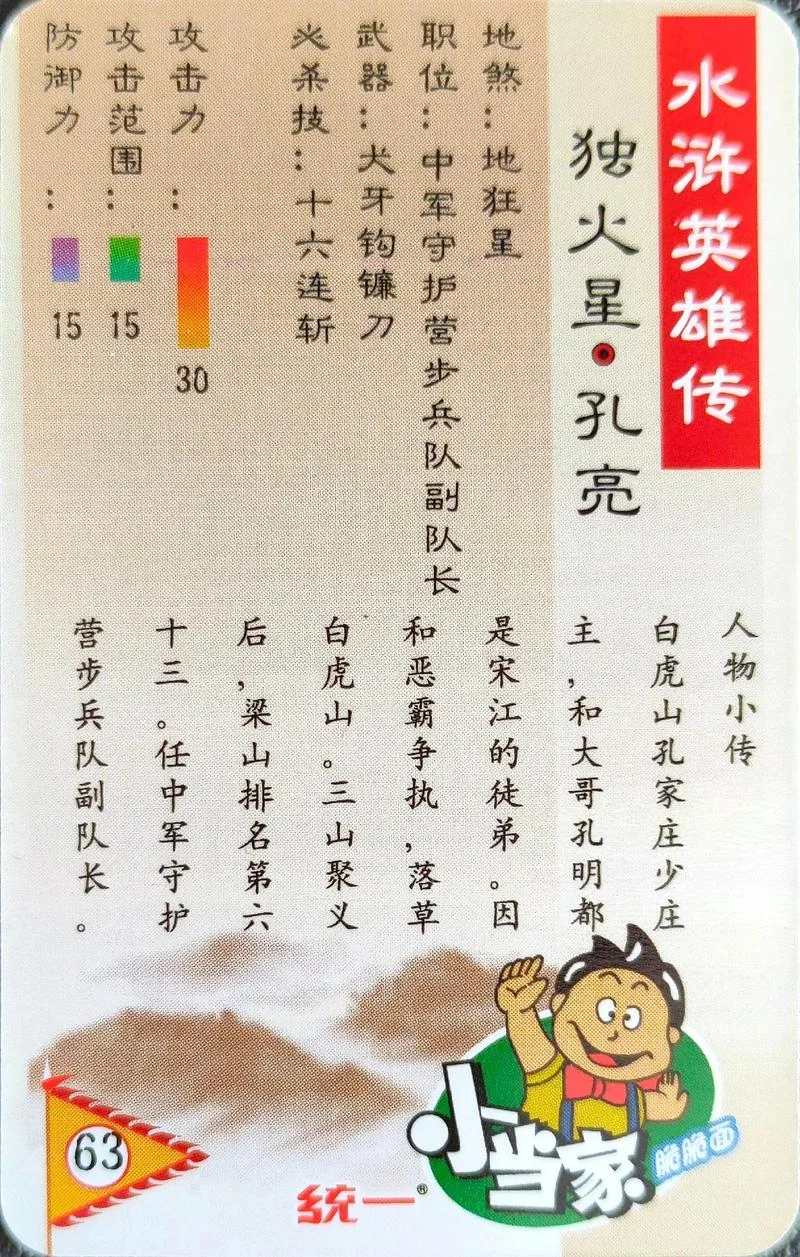 水浒英雄传
独火星·孔亮
地煞：地狂星
职位：中军守护营步兵队副队长
武器：犬牙钩镰刀
必杀技：十六连斩
攻击力：30
攻击范围：15
防御力：15
人物小传
白虎山孔家庄少庄
主，和大哥孔明都
是宋江的徒弟。因
和恶霸争执，落草
白虎山。三山聚义
后，梁山排名第六
十三。任中军守护
营步兵队副队长。
63
统一®
小当家
脆脆面